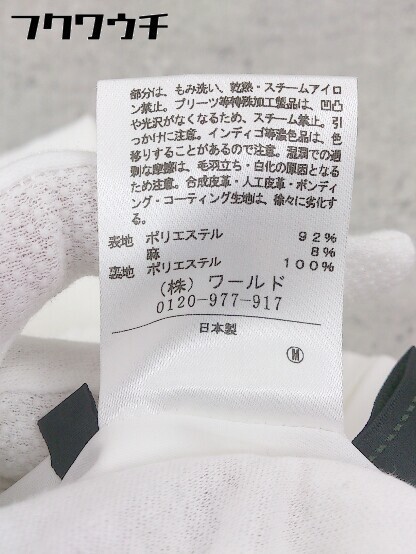 フクワウチ
部分は、もみ洗い、乾熱・スチームアイロ
ン禁止。プリーツ等特殊加工製品は、凹凸
や光沢がなくなるため、スチーム禁止。引
っかけに注意。インディゴ等濃色品は、色
移りすることがあるので注意。湿潤での過
剰な摩擦は、毛羽立ち・白化の原因となる
ため注意。合成皮革・人工皮革・ボンディ
ング・コーティング生地は、徐々に劣化す
る。
表地 ポリエステル 92%
麻 8%
裏地 ポリエステル 100%
(株) ワールド
0120-977-917
日本製
M